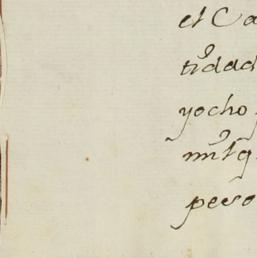 el Ca
tidad
yocho
mil q
peso